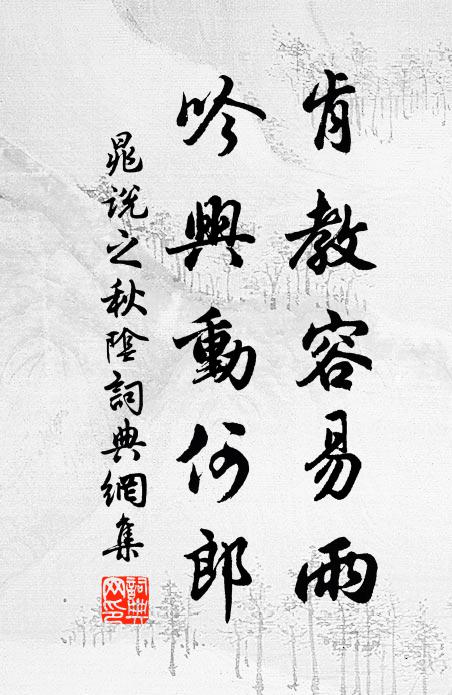 肯教容易雨
吟興動何郎
晁說之秋陰詞典網集
詞典網印